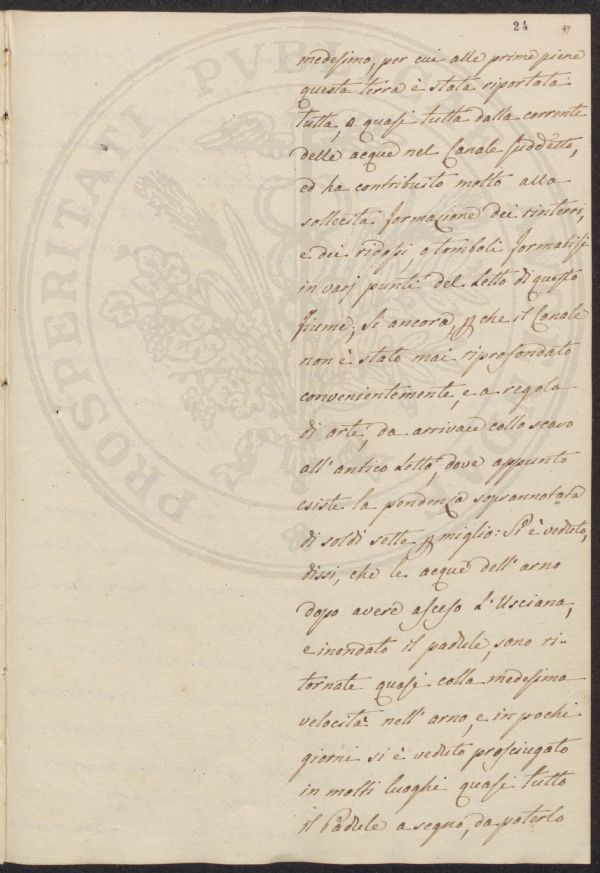 24 47
medesimo, per cui alle prime piene
questa terra è stata riportata
tutta, o quasi tutta dalla corrente
delle acque nel Canale suddetto,
ed ha contribuito molto alla
sollecita formazione dei rinterri,
e dei ridossi, o tomboli formatisi
in varj punti del Letto di questo
fiume; Si ancora, p che il Canale
non è stato mai riprofondato
convenientemente, e a regola
di arte, da arrivare collo scavo
all' antico Letto, dove appunto
esiste la pendenza soprannotata
di soldi sette p miglio: Si è veduto,
dissi, che le acque dell' arno
dopo avere asceso L'Usciana,
e inondato il padule, sono ri-
tornate quasi colla medesima
velocità nell' arno, e in pochi
giorni si è veduto prosciugato
in molti luoghi quasi tutto
il Padule a segno, da poterlo
PROSPERITATI PUBLIC